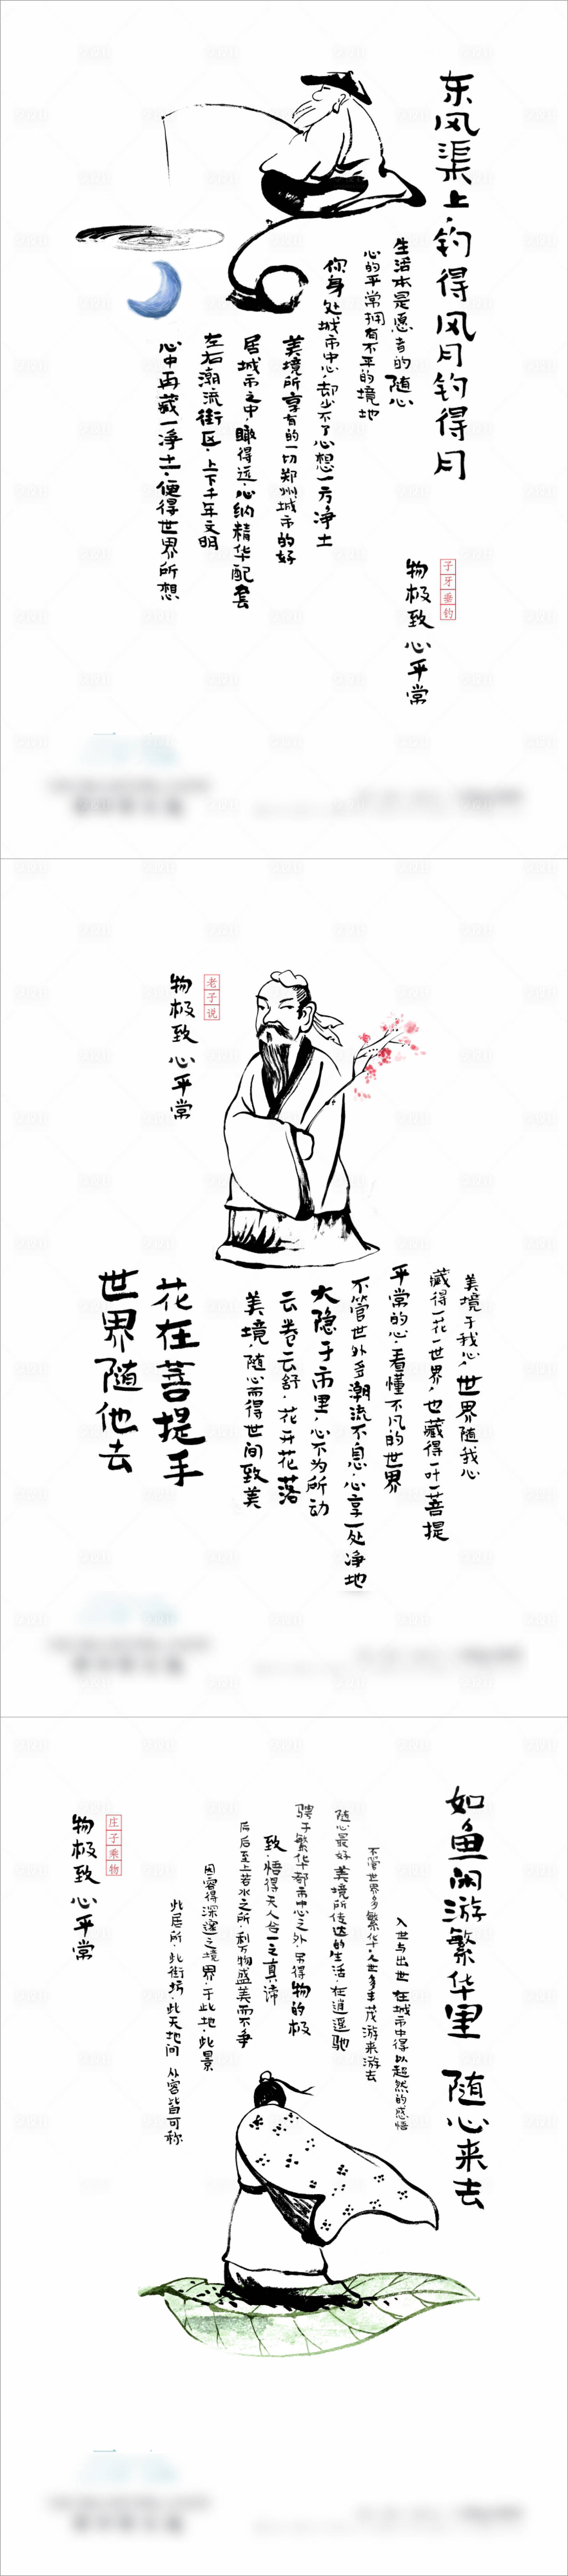 东风渠上,钓得风月钓得闲
生活本是愿者的随心
心的平常拥有不平的境地
你身处城市中心,却少不了心想一方净土
美境所享有的一切郑州城市的好
居城市之中,瞰得远,心纳精华配套
左右潮流街区,上下千年文明
心中再藏一净土,便得世界所想
子牙垂钓
物极致 心平常
老子说
物极致 心平常
美境于我心,世界随我心
藏得一花一世界,也藏得一叶一菩提
平常的心,看懂不凡的世界
不管世外多潮流不息,心享一处净地
大隐于市里,心不为所动
云卷云舒,花开花落
美境,随心而得世间致美
花在菩提手
世界随他去
如鱼闲游繁华里 随心来去
入世与出世 在城市中得以超然的感悟
不管世界多繁华,人世多丰茂 游来游去
随心最好 美境所传达的生活,在逍遥驰
骋于繁华都市中心之外,另得物的极
致,悟得天人合一之真谛
后居至上若水之所,利万物盛美而不争
因容得深邃之境界,于此地,此景
此居所,此街坊,此天地间 从容皆可称
庄子乘物
物极致 心平常